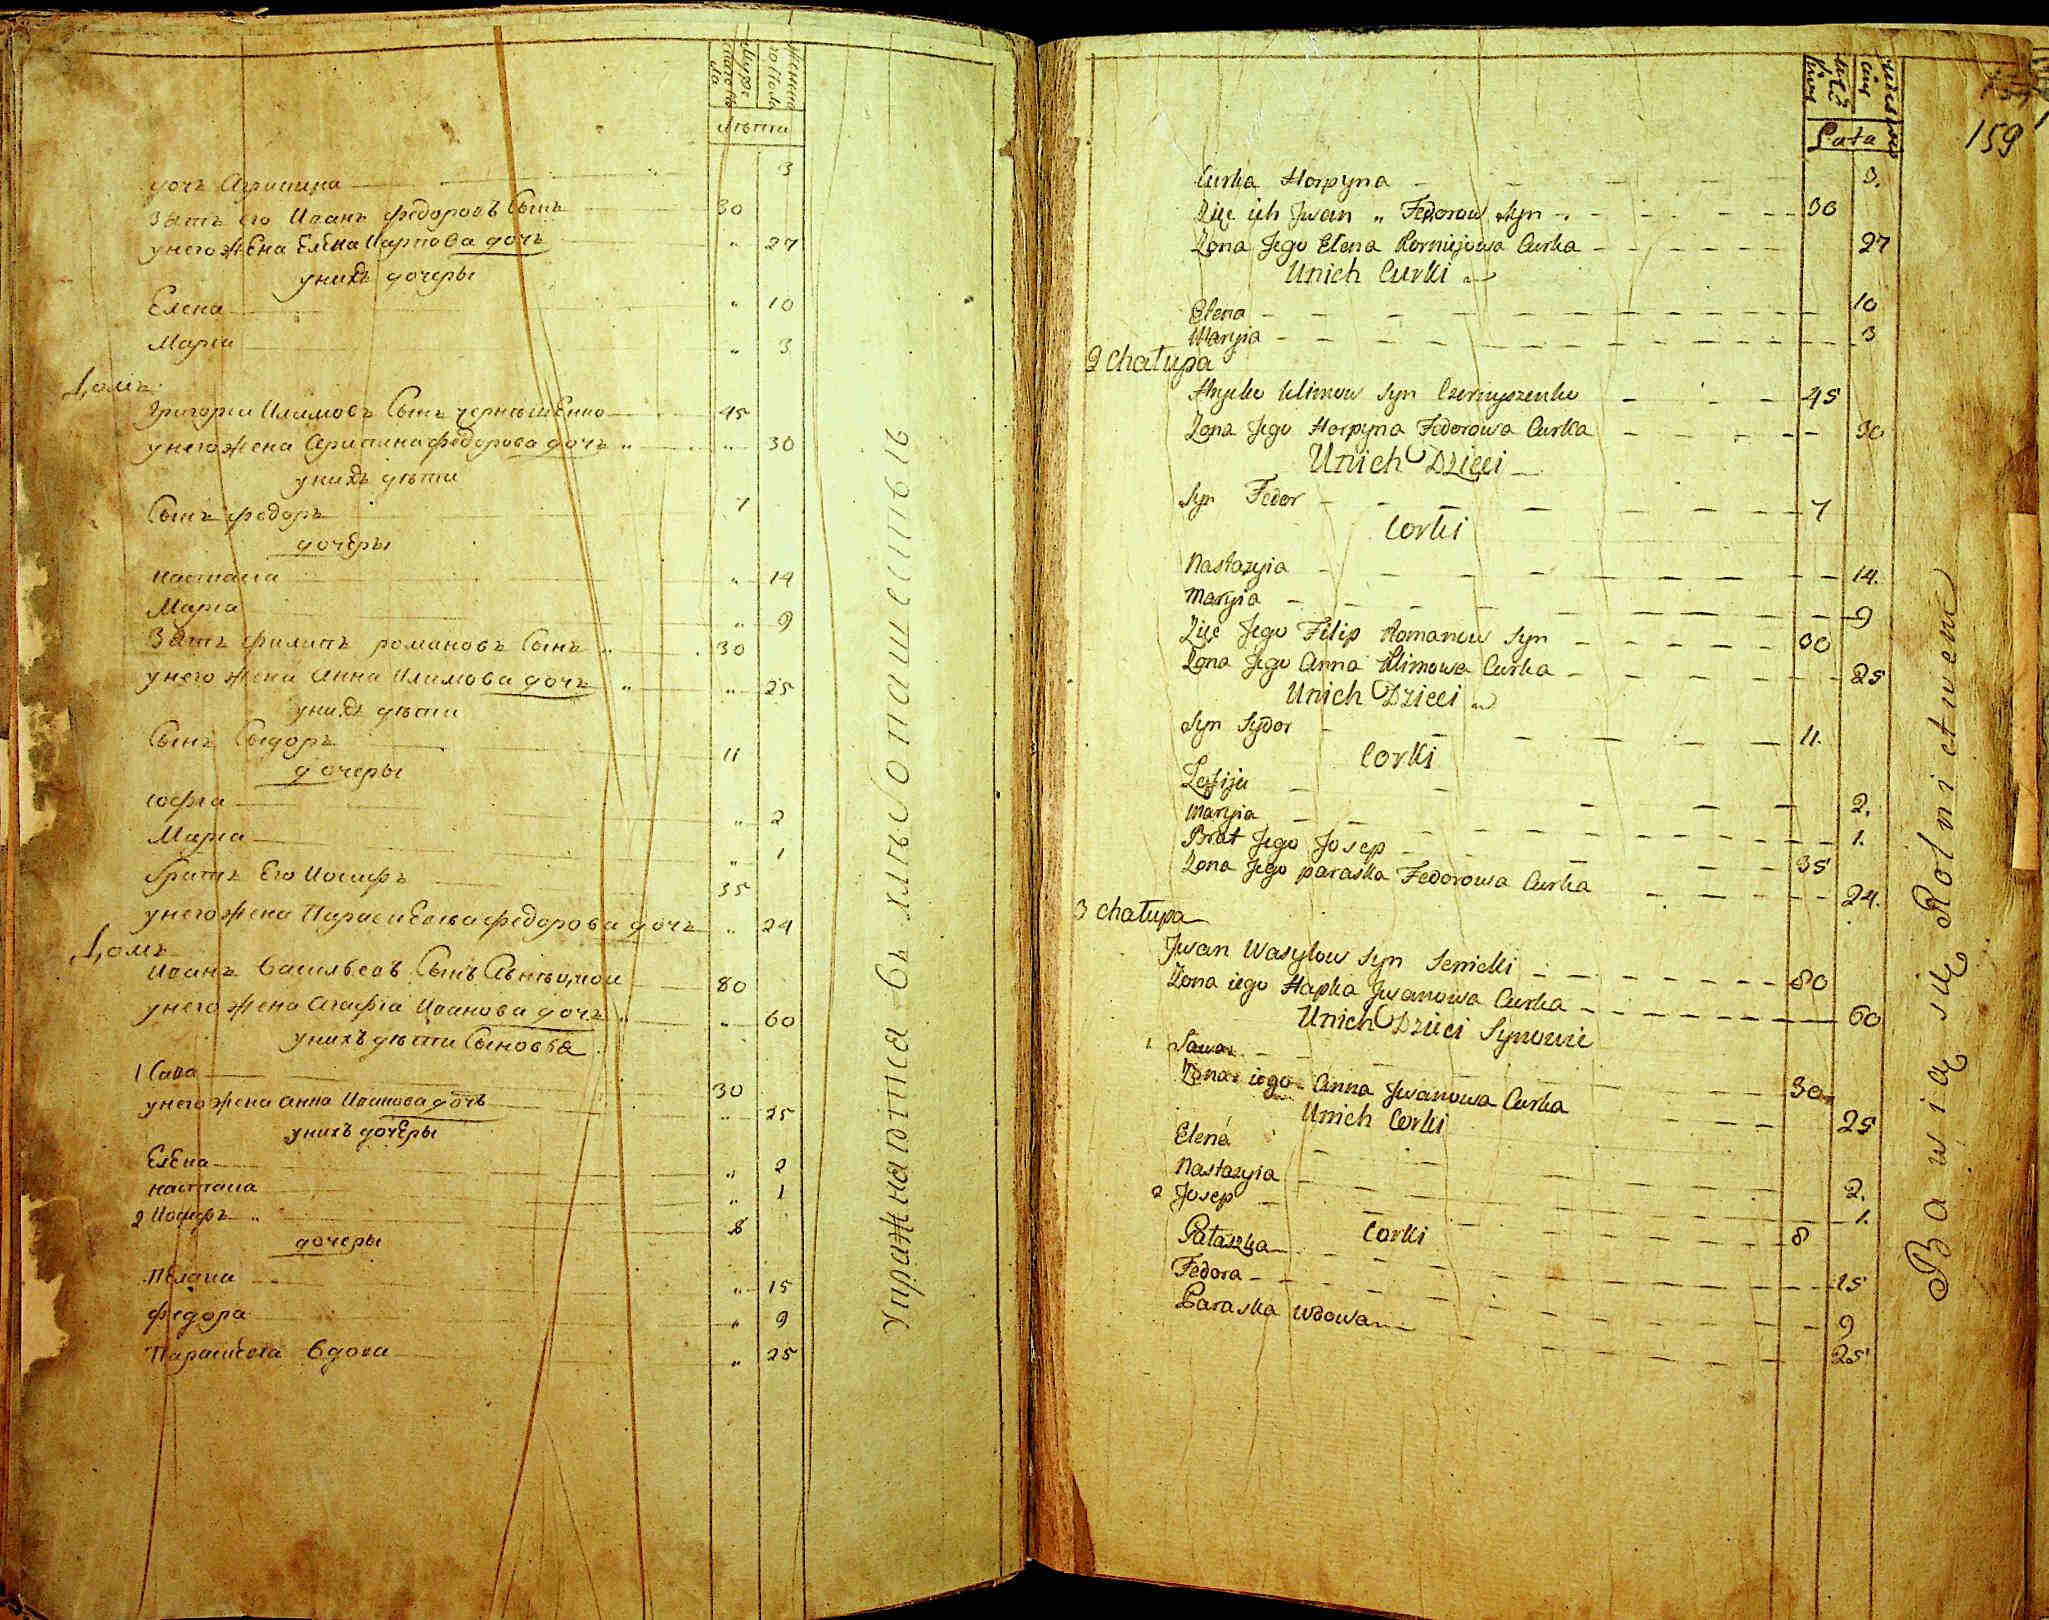 женска
го пола
Мужес
каго по
ла
лѣта
дочъ Агрипина 3
Зять его Иванъ федоровъ Сынъ 30
унего жена Елена Карпова дочъ " 27
унихъ дочеры
Елена " 10
Марiа " 3
Домъ
Григорiи Климовъ Сынъ чернышенко 45
унего жена Агрипина федорова дочъ " " 30
унихъ дѣти
Сынъ федоръ 7
дочеры
настасiа " 14
Марiа " 9
Зять филипъ романовъ Сынъ " 30
унего жена Анна Климова дочъ " " 25
унихъ дѣти
Сынъ Сыдоръ 11
дочеры
софiа " 2
Марiа " 1
братъ Его Иосифъ 35
унего жена Параскевiа федорова дочъ " 24
Домъ
Иванъ Васильевъ Сынъ 80
унего жена Агафiа Иванова дочъ " " 60
унихъ дѣти Сыновья
1 Сава 30
унего жена анна Иванова дочъ " 25
унихъ дочеры
Елена " 2
настасiа " 1
2 Иосифъ " 8
дочеры
Пелагiа " 15
федора " 9
Параскева вдова " 25
Упражнаютса въ хлѣбопашествѣ
159
Lata
Curka Horpyna 3.
Zięć ich Jwan „ Fedorow Syn 30
Zona Jego Elena Korniejowa Curka 27
Unich Curki
Elena 10
Maryia 3
2 Chałupa
Hryko Klimow Syn Czernyszenko 45
Zona Jego Horpyna Fedorowa Curka 30
Unich Dzieci
Syn Fedor 7
Corki
Nastazyia 14.
Maryia 9
Zięć Jego Filip Romanow Syn 30
Zona Jego Anna Klimowa Curka 25
Unich Dzieci
Syn Sydor 11.
Corki
Zofija 2.
Maryia 1.
Brat Jego Josep 35
Zona Jego paraska Fedorowa Curka 24.
3 chałupa
Jwan Wasylow Syn Senicki 80
Zona iego Hapka Jwanowa Curka 60
Unich Dzieci Synowie
1 Sawa 30
Zona iego Anna Jwanowa Curka 25
Unich Corki
Elena 2.
Nastazyia 1.
2 Josep 8
Corki
Pałaszka 15
Fedora 9
Paraska wdowa 25
Bawią się Rolnictwem